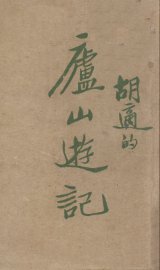 胡適的
廬山遊記